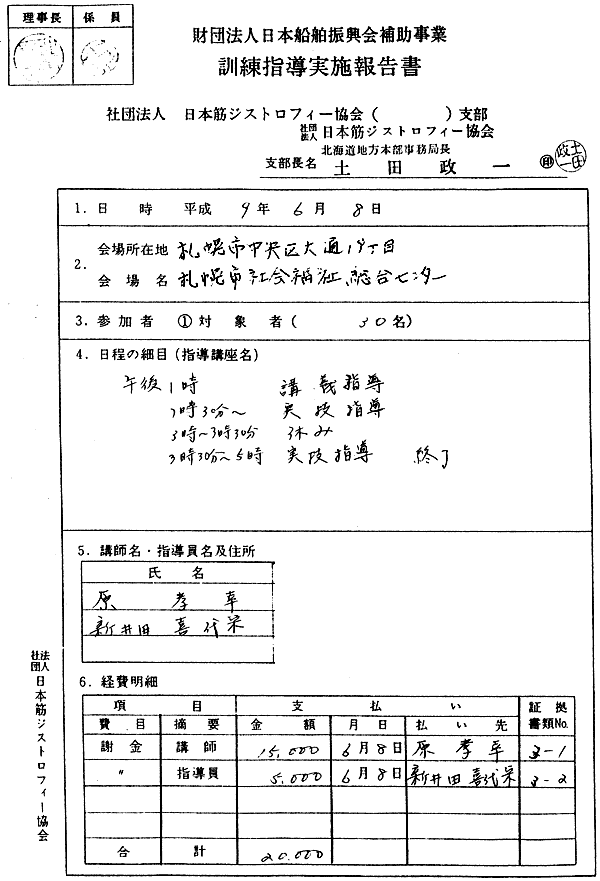 理事長 係員
財団法人日本船舶振興会補助事業
訓練指導実施報告書
社団法人 日本筋ジストロフィー協会( )支部
社団法人 日本筋ジストロフィー協会
北海道地方本部事務局長
支部長名 土田政一 ㊞
1. 日時 平成 9年 6月 8日
2. 会場所在地 札幌市中央区大通19丁目
会場名 札幌市社会福祉総合センター
3. 参加者 ①対象者( 30名)
4. 日程の細目(指導講座名)
午後1時 講義指導
1時30分～ 実技指導
3時～3時30分 休み
3時30分～5時 実技指導 終了
5. 講師名・指導員名及住所
氏名
原 孝幸
新井田 喜代栄
6. 経費明細
項目 支払い 証拠書類No.
費目 摘要 金額 月日 払い先
謝金 講師 15,000 6月8日 原 孝幸 3-1
〃 指導員 5,000 6月8日 新井田 喜代栄 3-2
合計 20.000
社団法人 日本筋ジストロフィー協会